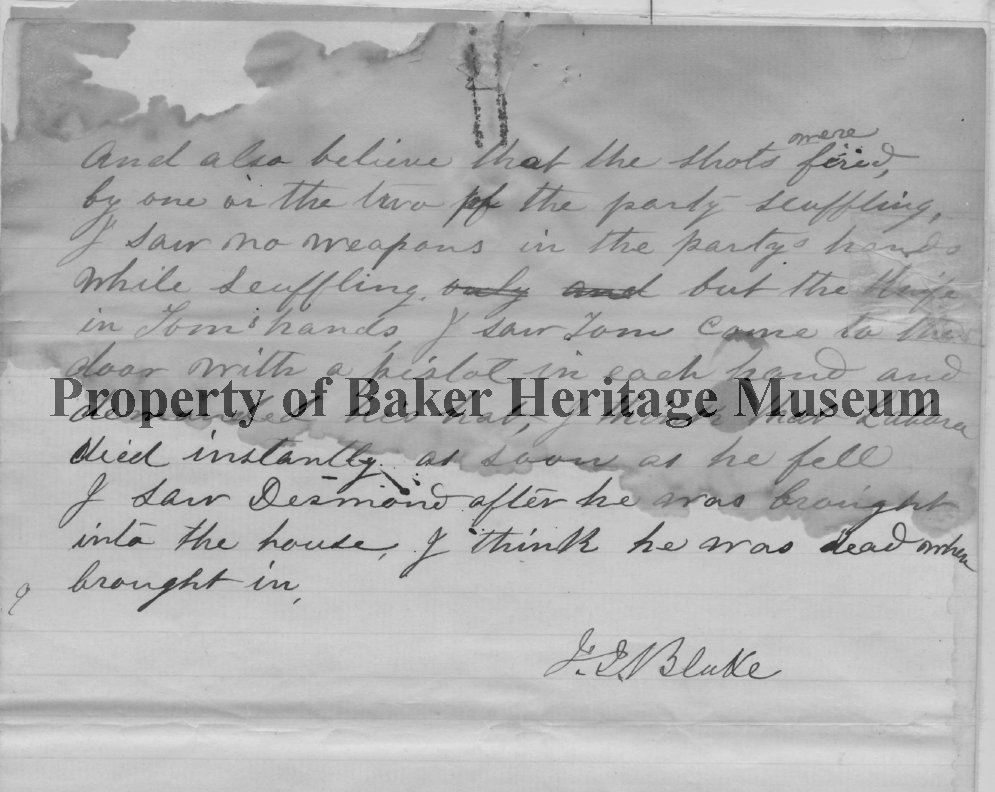 were
And also believe that the shots fired,
by one or the two of the party scuffling,
I saw no weapons in the partys hands
while scuffling, only and but the Knife
in Tom's hands, I saw Tom Come to the
door with a pistol in each hand and
Property of Baker Heritage Museum
demanded his hat, I think that
died instantly as soon as he fell
I saw Desmond after he was brought
into the house, I think he was dead when
brought in,
J. I. Blake